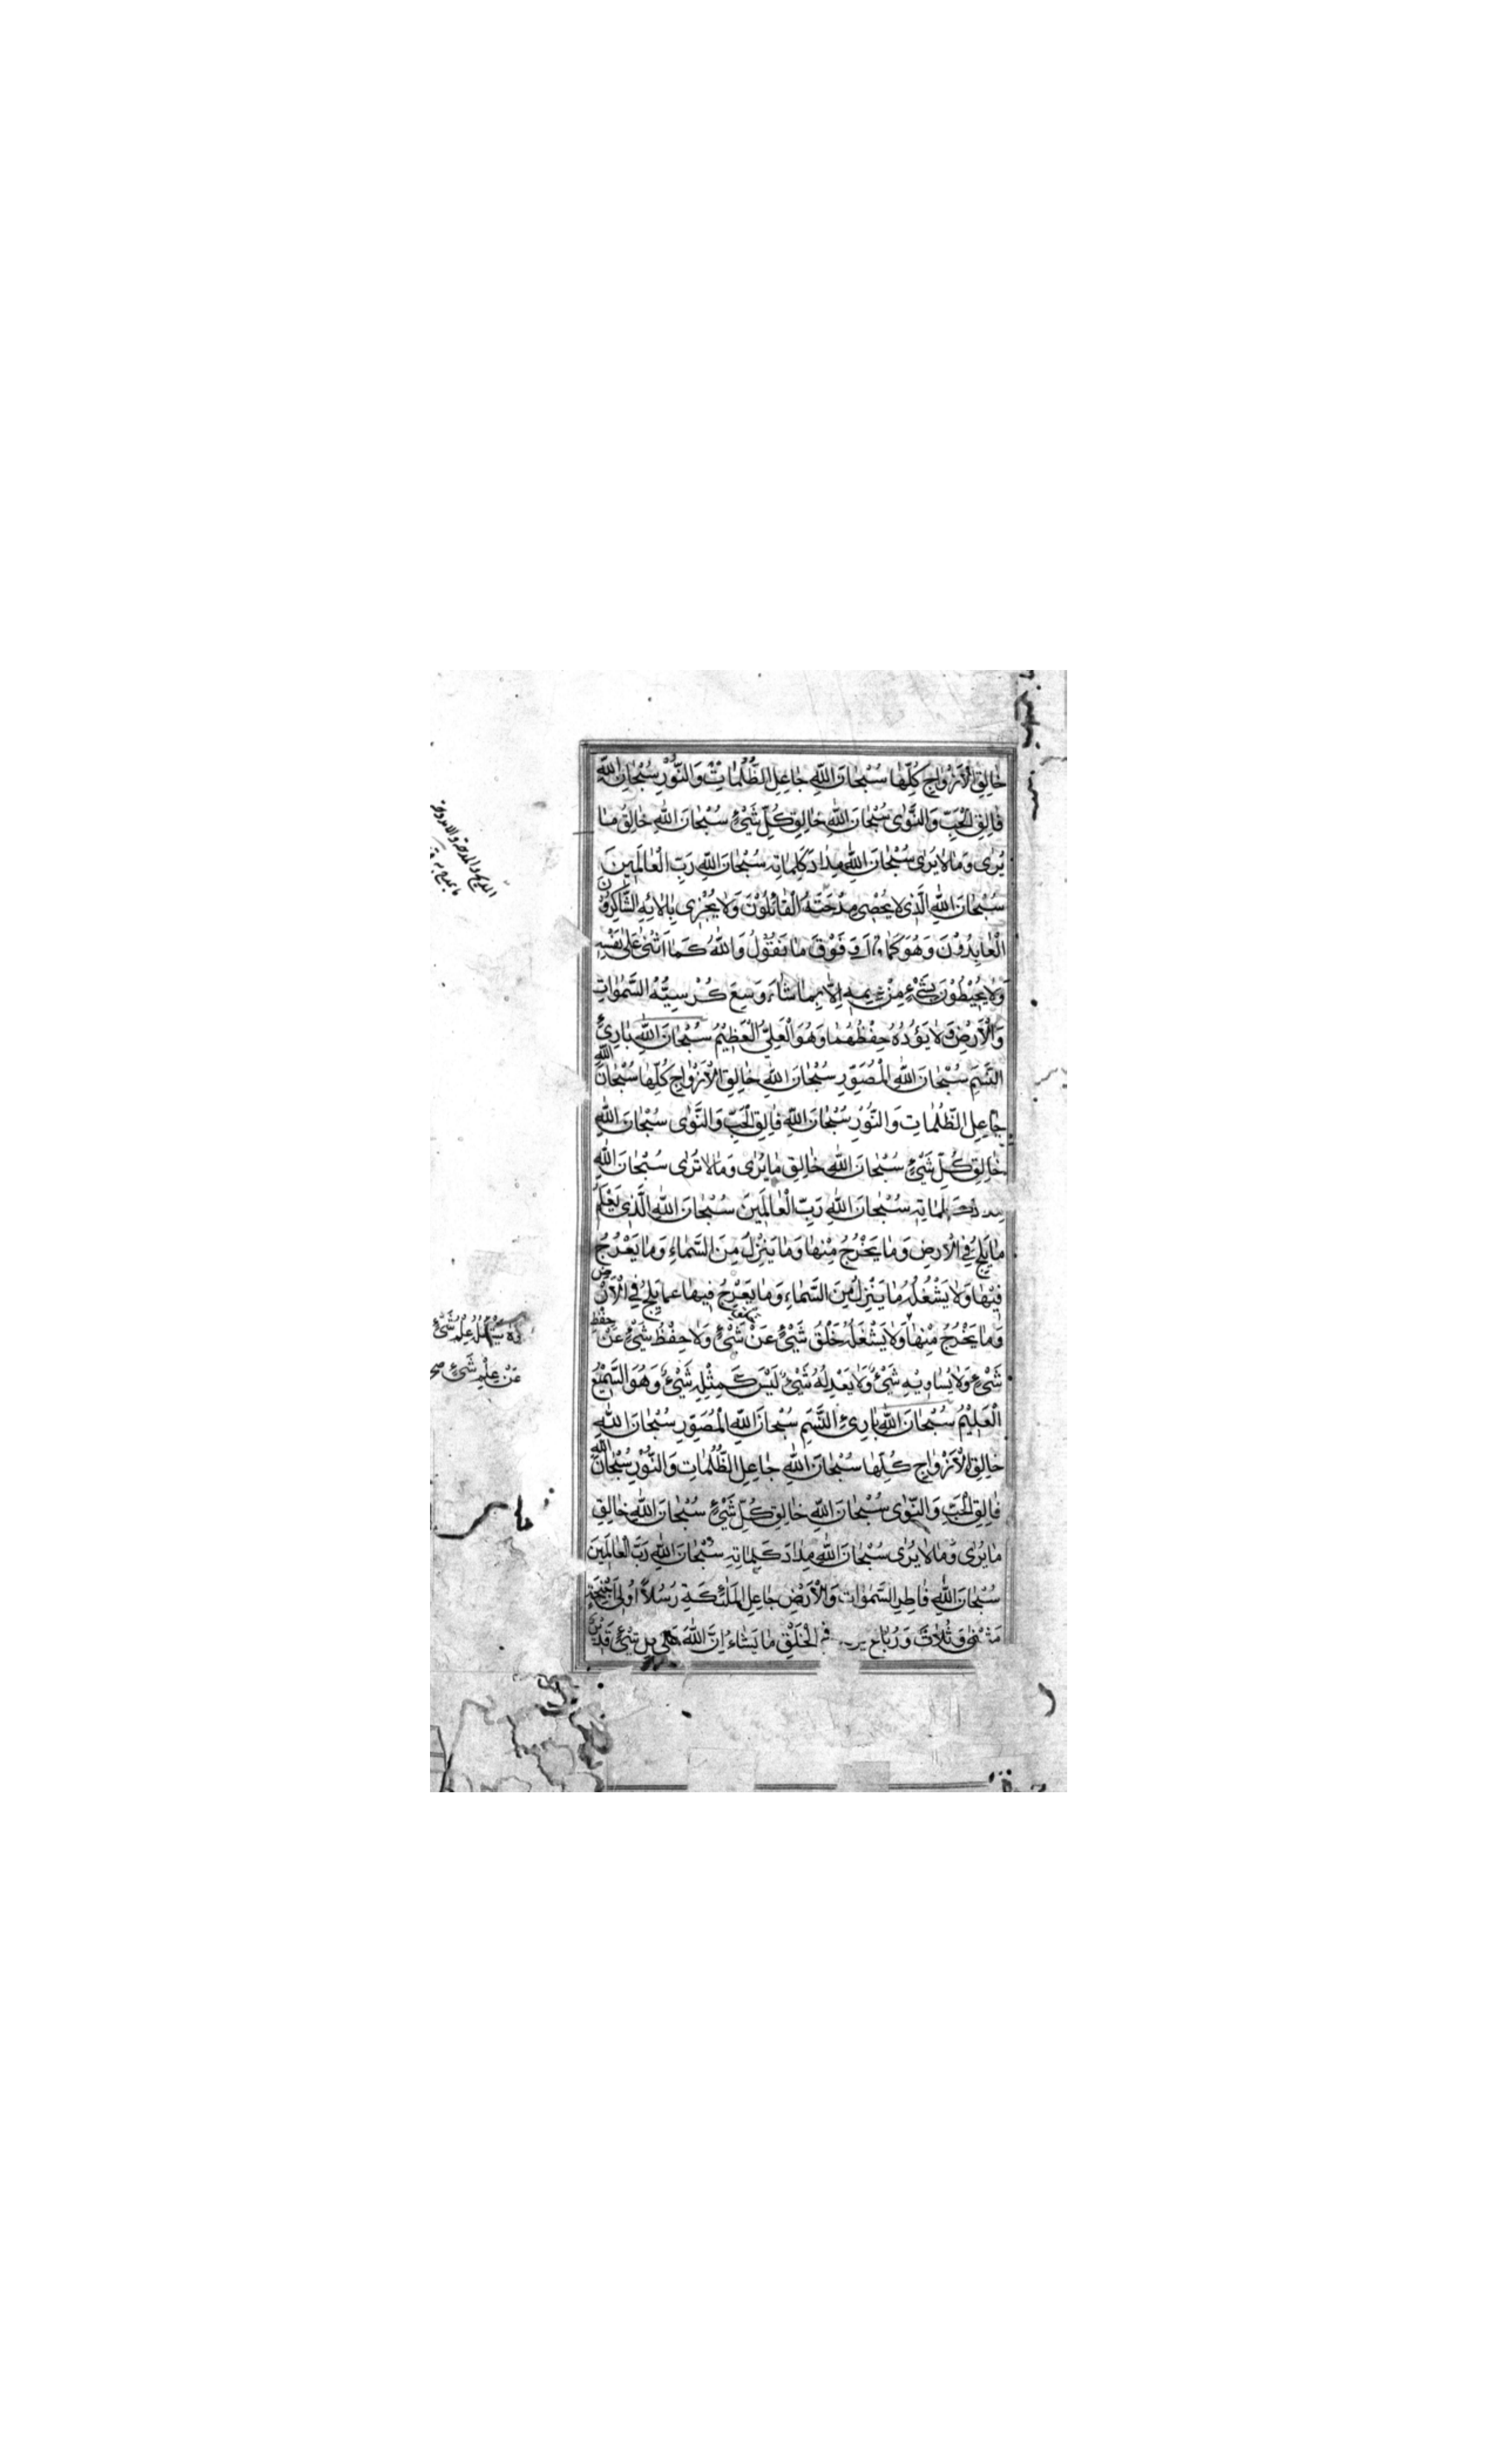 خالِقِ الْاَزْواجِ كُلِّها سُبْحانَ اللّٰهِ جاعِلِ الظُّلُماتِ وَالنُّورِ سُبْحانَ اللّٰهِ
فالِقِ الْحَبِّ وَالنَّوٰى سُبْحانَ اللّٰهِ خالِقِ كُلِّ شَيْءٍ سُبْحانَ اللّٰهِ خالِقِ ما
يُرٰى وَما لا يُرٰى سُبْحانَ اللّٰهِ مِدادَ كَلِماتِهِ سُبْحانَ اللّٰهِ رَبِّ الْعالَمِينَ
سُبْحانَ اللّٰهِ الَّذِي لا يُحْصِي مِدْحَتَهُ الْقائِلُوْنَ وَلا يُجْزِي بِالائِهِ الشَّاكِرُونَ
الْعابِدُوْنَ وَهُوَ كَما فَوْقَ ما نَقُوْلُ وَاللّٰهُ كَما اَثْنٰى عَلٰى نَفْسِهِ
وَلا يُحِيْطُوْنَ بِشَيْءٍ مِنْ اِلَّا بِما شاءَ وَسِعَ كُرْسِيُّهُ السَّمٰواتِ
وَالْاَرْضَ وَلا يَؤُدُهُ حِفْظُهُما وَهُوَ الْعَلِيُّ الْعَظِيْمُ سُبْحانَ اللّٰهِ بارِئِ
النَّسَمِ سُبْحانَ اللّٰهِ الْمُصَوِّرِ سُبْحانَ اللّٰهِ خالِقِ الْاَزْواجِ كُلِّها سُبْحانَ اللّٰهِ
جاعِلِ الظُّلُماتِ وَالنُّورِ سُبْحانَ اللّٰهِ فالِقِ الْحَبِّ وَالنَّوٰى سُبْحانَ اللّٰهِ
خالِقِ كُلِّ شَيْءٍ سُبْحانَ اللّٰهِ خالِقِ ما يُرٰى وَما لا تُرٰى سُبْحانَ اللّٰهِ
كَلِماتِهِ سُبْحانَ اللّٰهِ رَبِّ الْعالَمِينَ سُبْحانَ اللّٰهِ الَّذِي يَعْلَمُ
ما يَلِجُ فِي الْاَرْضِ وَما يَخْرُجُ مِنْها وَما يَنْزِلُ مِنَ السَّماءِ وَما يَعْرُجُ
فِيْها وَلا يَشْغُلُهُ ما يَنْزِلُ مِنَ السَّماءِ وَما يَعْرُجُ فِيها عما يَلِجُ فِي الْاَرْضِ
وَما يَخْرُجُ مِنْها وَلا يَشْغَلُهُ خَلْقُ شَيْءٍ عَنْ شَيْءٍ وَلا حِفْظُ شَيْءٍ عَنْ حِفْظِ
شَيْءٍ وَلا يُساوِيْهِ شَيْءٌ وَلا يَعْدِلُهُ شَيْءٌ لَيْسَ كَمِثْلِهِ شَيْءٌ وَهُوَ السَّمِيْعُ
الْعَلِيْمُ سُبْحانَ اللّٰهِ بارِئِ النَّسَمِ سُبْحانَ اللّٰهِ الْمُصَوِّرِ سُبْحانَ اللّٰهِ
خالِقِ الْاَزْواجِ كُلِّها سُبْحانَ اللّٰهِ جاعِلِ الظُّلُماتِ وَالنُّوْرِ سُبْحانَ اللّٰهِ
فالِقِ الْحَبِّ وَالنَّوٰى سُبْحانَ اللّٰهِ خالِقِ كُلِّ شَيْءٍ سُبْحانَ اللّٰهِ خالِقِ
ما يُرٰى وَما لا يُرٰى سُبْحانَ اللّٰهِ مِدادَ كَلِماتِهِ سُبْحانَ اللّٰهِ رَبِّ الْعالَمِينَ
سُبْحانَ اللّٰهِ فاطِرِ السَّمٰواتِ وَالْاَرْضِ جاعِلِ الْمَلٰئِكَةِ رُسُلاً اُولِي اَجْنِحَةٍ
مَثْنٰى وَثُلاثَ وَرُباعَ الْخَلْقِ ما يَشاءُ اِنَّ اللّٰهَ عَلٰى شَيْءٍ قَدِيْرٌ
عِلْمُ شَيْءٍ
عَنْ عِلْمِ شَيْءٍ صح